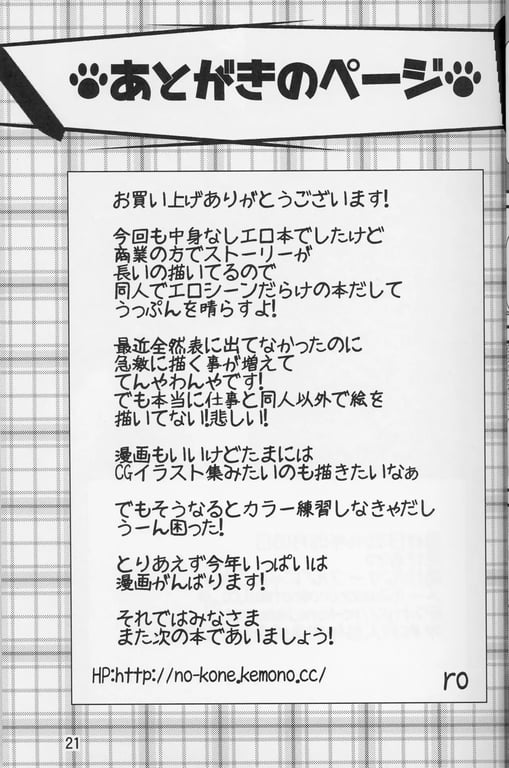 あとがきのページ
お買い上げありがとうございます!
今回も中身なしエロ本でしたけど
商業の方でストーリーが
長いの描いてるので
同人でエロシーンだらけの本だして
うっぷんを晴らすよ!
最近全然表に出てなかったのに
急激に描く事が増えて
てんやわんやです!
でも本当に仕事と同人以外で絵を
描いてない!悲しい!
漫画もいいけどたまには
CGイラスト集みたいのも描きたいなぁ
でもそうなるとカラー練習しなきゃだし
うーん困った!
とりあえず今年いっぱいは
漫画がんばります!
それではみなさま
また次の本であいましょう!
HP:http://no-kone.kemono.cc/
ro
21